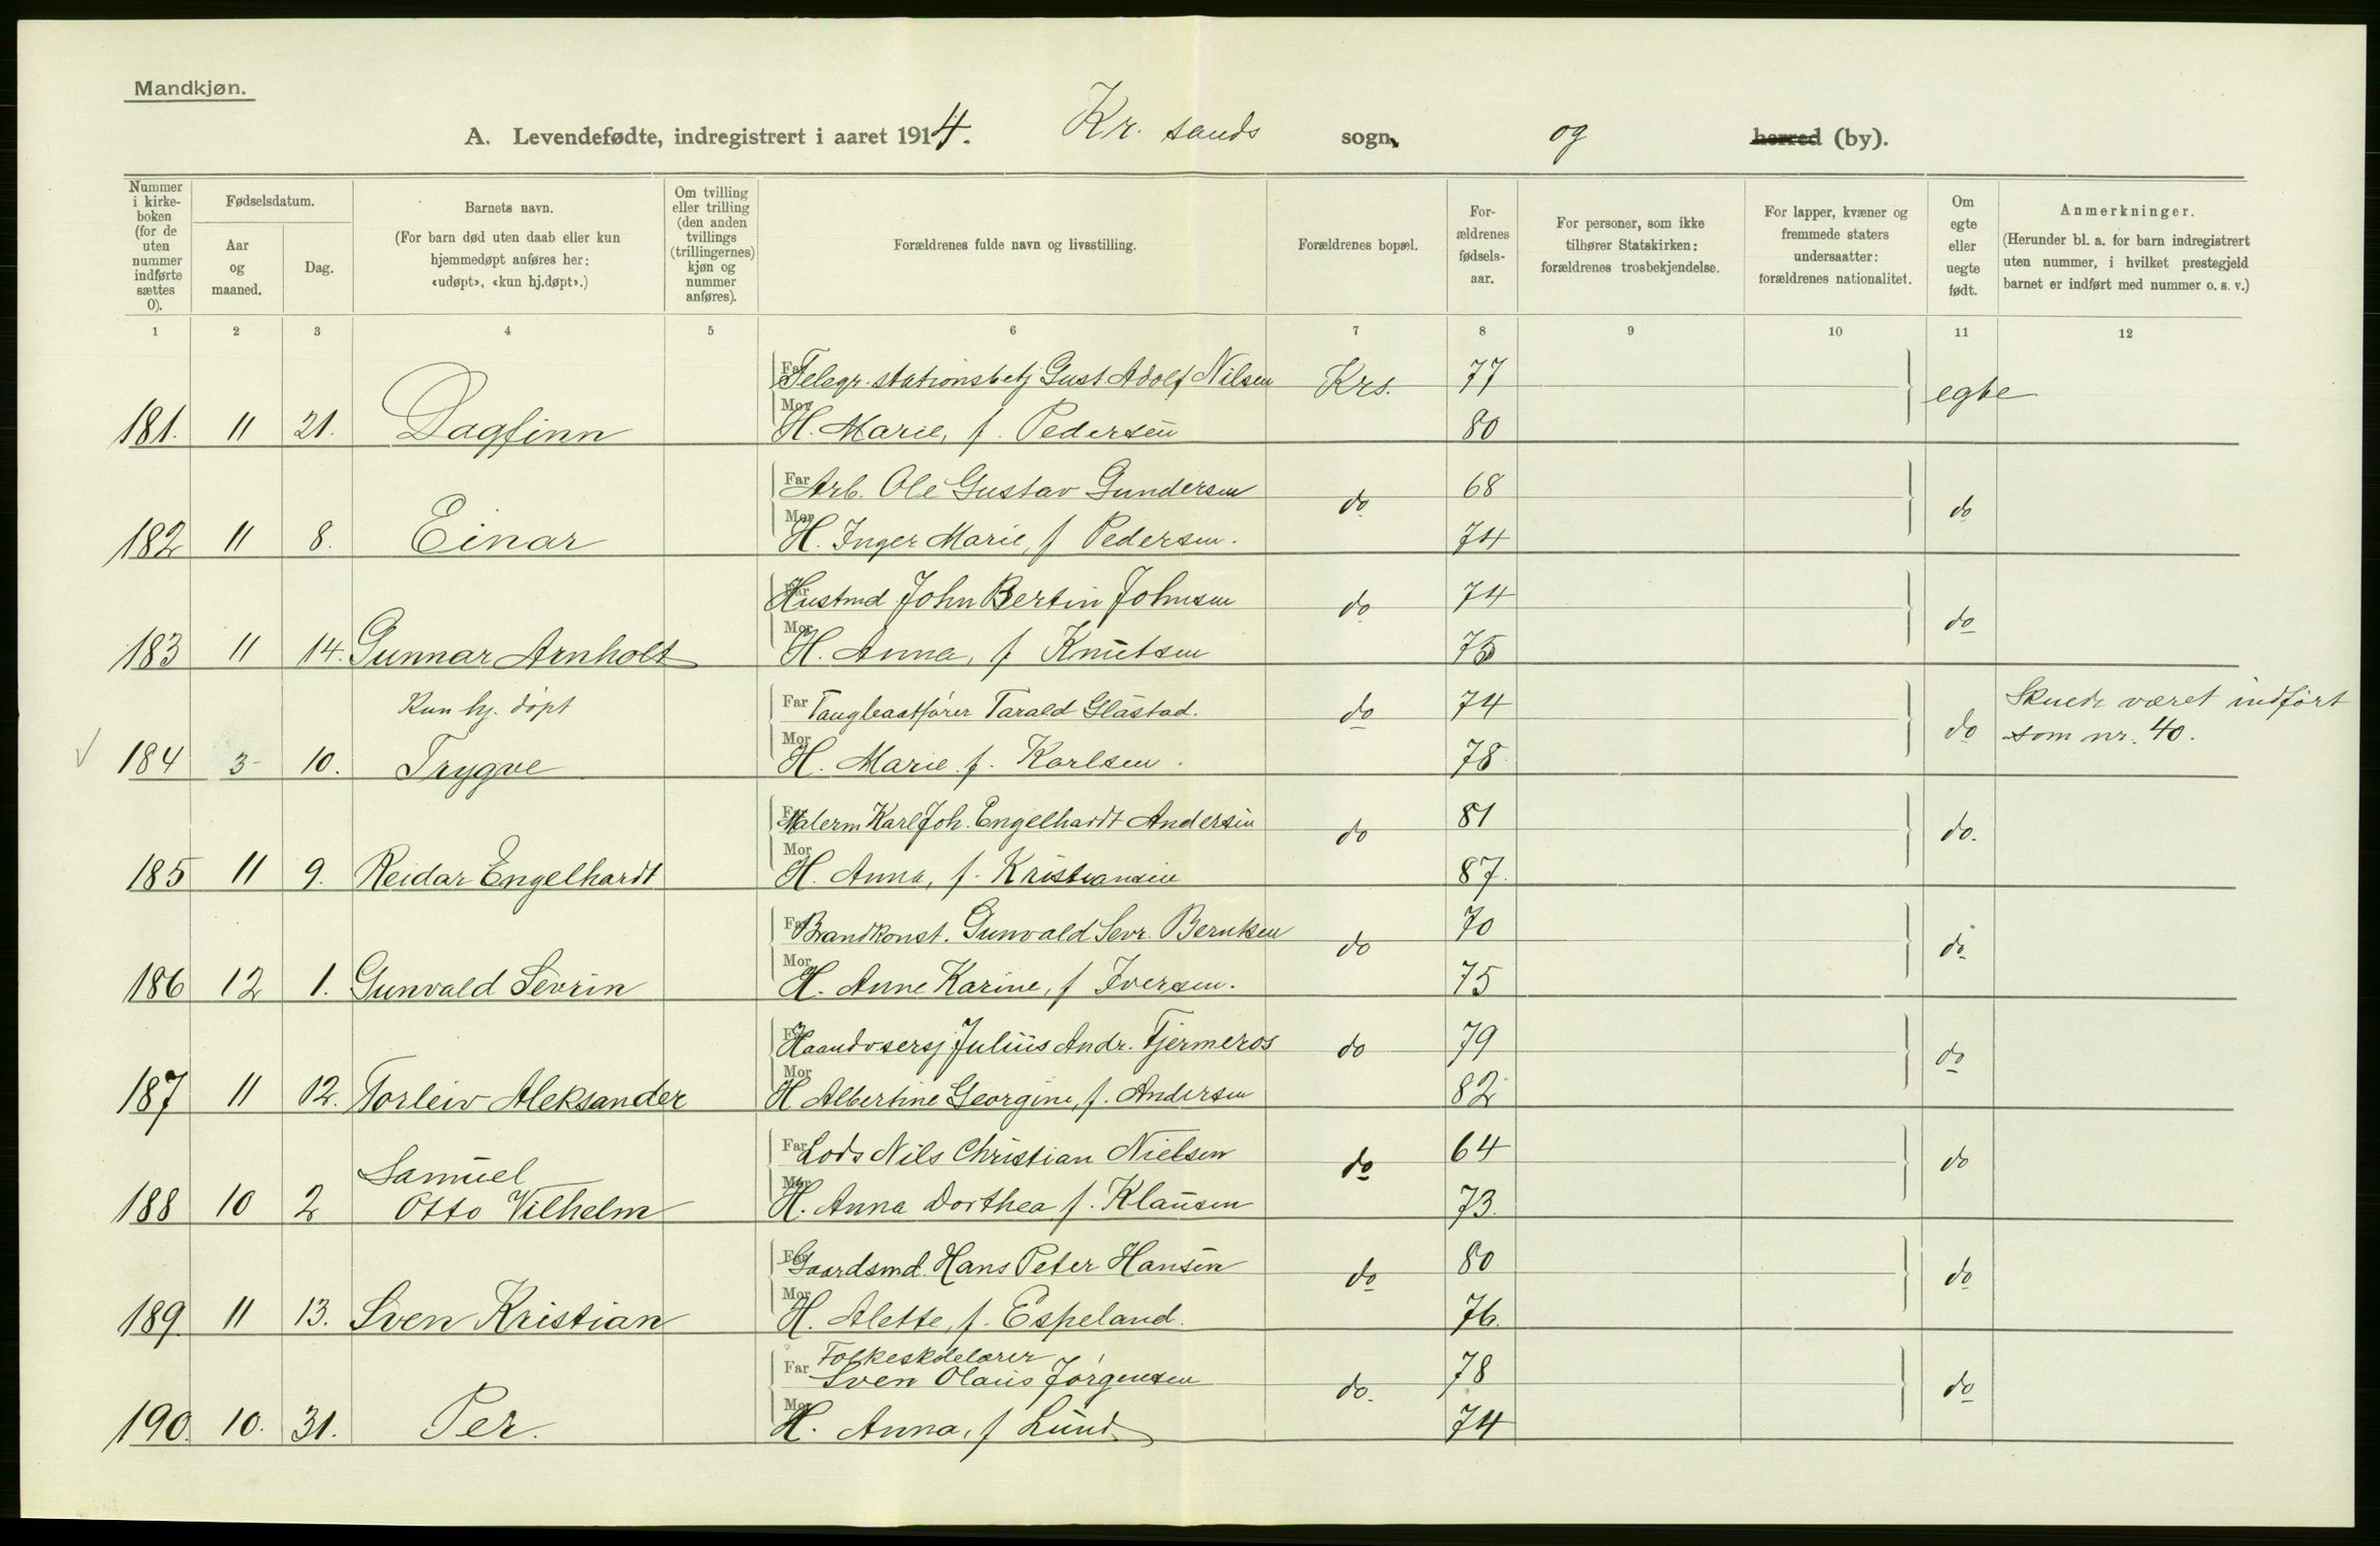 Mandkjøn.
A. Levendefødte, indregistrert i aaret 1914. Kr. sands sogn og herred (by).
Nummer i kirke-boken (for de uten nummer indførte sættes 0).
Fødselsdatum.
Aar og maaned.
Dag.
Barnets navn.
(For barn død uten daab eller kun hjemmedøpt anføres her: «udøpt», «kun hj.døpt».)
Om tvilling eller trilling (den anden tvillings (trillingernes) kjøn og nummer anføres).
Forældrenes fulde navn og livsstilling.
Forældrenes bopæl.
For-ældrenes fødsels-aar.
For personer, som ikke tilhører Statskirken: forældrenes trosbekjendelse.
For lapper, kvæner og fremmede staters undersaatter: forældrenes nationalitet.
Om egte eller uegte født.
Anmerkninger.
(Herunder bl. a. for barn indregistrert uten nummer, i hvilket prestegjeld barnet er indført med nummer o. s. v.)
1 2 3 4 5 6 7 8 9 10 11 12
Far Telegr. stationsbetj Gust Adolf Nilsen Krs. 77 egte
181. 11 21. Dagfinn Mor H. Marie, f. Pedersen 80
Far Arb. Ole Gustav Gundersen do 68 do
182 11 8. Einar Mor H. Inger Marie, f Pedersen. 74
Far Hustmd John Bertin Johnsen do 74 do
183 11 14. Gunnar Arnholt Mor H. Anna, f Knutsen 75
Kun hj. døpt Far Taugbaatfører Tarald Glastad. do 74 do Skuede været indført
184 3 10. Trygve Mor H. Marie f. Karlsen. 78 som nr. 40.
Far Malerm Karl Joh. Engelhardt Andersen do 81 do.
185 11 9. Reidar Engelhardt Mor H. Anna, f. Kristiansen 87.
Far Brandkonst. Gunvald Sevr. Berntsen do 70 do
186 12 1. Gunvald Sevrin Mor H. Anne Karine, f Iversen. 75
Far Haandv.sersj Julius Andr. Tjermeros do 79 do
187 11 12. Torleiv Aleksander Mor H. Albertine Georgine, f. Andersen 82
Samuel Far Lods Nils Christian Nielsen do 64 do
188 10 2 Otto Vilhelm Mor H. Anna Dorthea f. Klausen 73.
Far Gaardsmd. Hans Peter Hansen do 80 do
189. 11 13. Sven Kristian Mor H. Alette, f. Espeland. 76.
Folkeskolelærer
Far Sven Olaus Jørgensen do. 78 do
190. 10. 31. Per. Mor H. Anna, f Lund 74